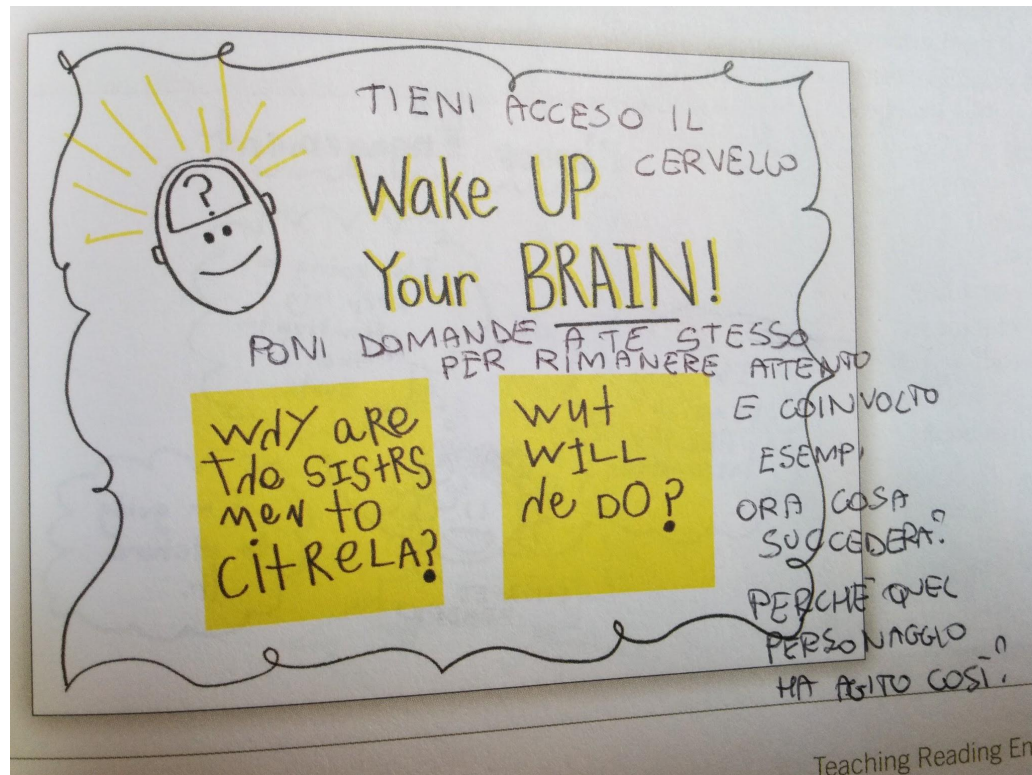 TIENI ACCESO IL
CERVELLO
Wake UP
Your BRAIN!
PONI DOMANDE A TE STESSO
PER RIMANERE ATTENTO
E COINVOLTO
ESEMPI
ORA COSA
SUCCEDERA?
PERCHÉ QUEL
PERSONAGGIO
HA AGITO COSÌ?
WdY aRe
Tde SIStRS
MeN tO
CitReLA?
wut
WILL
de DO?
Teaching Reading En